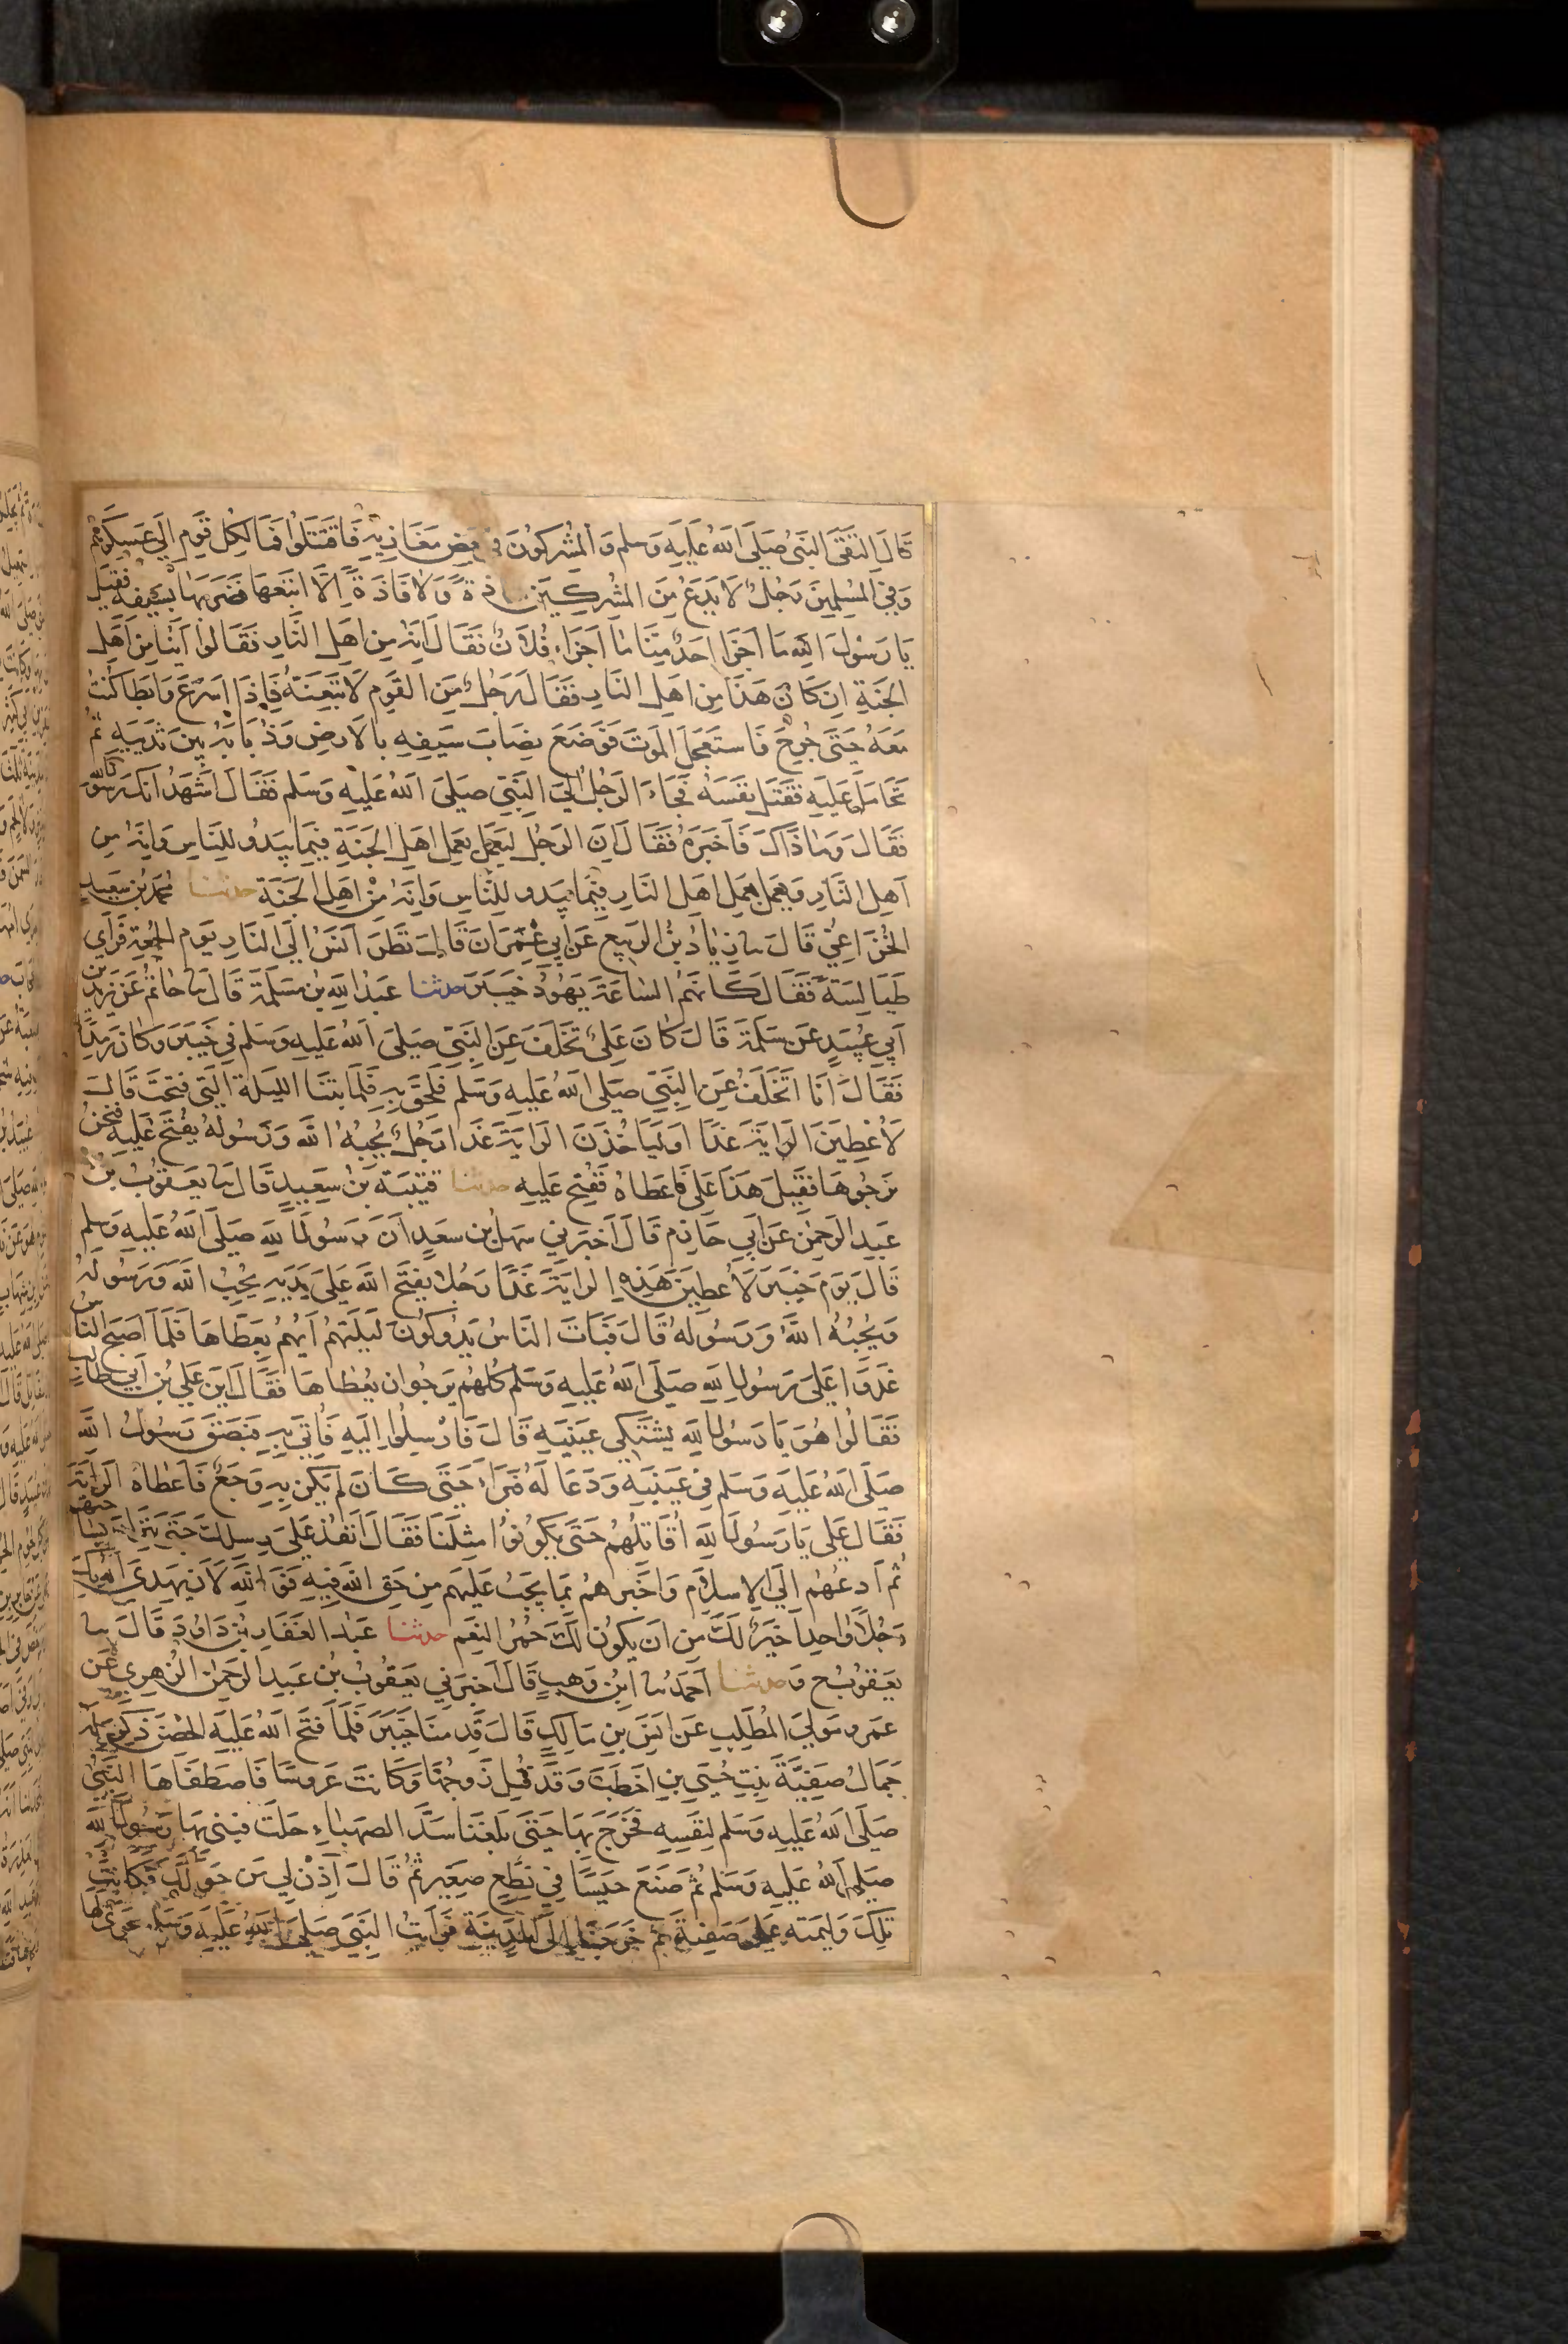 قَالَ التَقَى النَبىُ صَلَى اللهُ عَلَيهِ وَسَلم وَالمُشرِكُونَ فى بَعضِ مَغَازِيهِ فَاقتَتَلُوا فَمَالَ كُل قَومٍ اِلَى عَسكَرِهِم
وَفِى المُسلِمِينَ رَجُلٌ لَا يَدَعُ مِنَ المُشركِينَ شاذةً وَلا فَاذةً اِلَّا اتبَعَهَا فضَرَبَهَا بسَيفه فقِيلَ
يَا رَسُولَ اللهِ مَا اَجزَا اَحدٌ مِنَّا مَا اَجزَاء فُلَانٌ فَقَالَ اِنهُ مِن اَهلِ النَّارِ فَقَالُوا اَيُّنا مِن اَهلِ
الجَنةِ اِن كَانَ هَذَا مِن اَهلِ النَارِ فَقَالَ رَجُلٌ مِنَ القَومِ لَا تَّبِعَنهُ فَاِذَا اَسرَعَ وَابطَا كُنتُ
مَعَهُ حَتَى جُرِحَ فَاستَعجَلَ المَوتَ فَوَضَعَ نِصَابَ سَيفِهِ بالَارضِ وَذُبَابَهُ بَينَ ثَديَيهِ ثُم
تَحَامَلَ عَلَيهِ فقَتَلَ نفسَهُ فجَاءَ الرَجُلُ اِلَى النَبِّي صَلَى اللهُ عَلَيهِ وَسَلم فقَالَ اَشهَدُ اَنكَ رَسُولُ الله
فَقَالَ وَمَا ذَاكَ فَاَخبَرَهُ فَقَالَ اِنَ الرَجُل ليَعمَلُ بعَمَلِ اَهلِ الجَنَةِ فِيمَا يَبدُو لِلنَّاسِ وَاِنهُ مِن
اَهلِ النَّارِ وَيعمَل بعَمَلِ اهلِ النَارِ فِيمَا يَبدو لِلنَّاسِ وَاِنهُ مْن اهلِ الجَنَةِ حدثنا مُحمدُ بن سَعيدٍ
الخُزَاعِىُّ قَالَ سا زِيَادُ بْنُ الرَبِيع عَن اَبى عِمرَانَ قَالَ نَظَرَ اَنَسٌ اِلَى النَاسِ يَومَ الجُمعَةِ فَرَاَى
طَيَالِسَةً فَقَالَ كَاَنهُم السَاعَةَ يَهُودُ خَيبَرَ حدثنا عَبدُ اللهِ بن مَسلَمةَ قَالَ سا حَاتمُ عَن يَزيدَ بن
اَبى عُبَيدٍ عَن سَلَمَةَ قَالَ كَانَ عَلىٌ تَخَلَفَ عَنِ النَبىِّ صَلَى اللهُ عَلَيهِ وَسَلم فِى خَيبَرَ وَكَانَ رَمِدًا
فَقَالَ اَنَا اَتَخَلَفُ عَنِ النَبّىِ صَلَى اللهُ عَلَيهِ وَسَلم فَلَحِقَ بهِ فَلَمَا بِتنَا اللَيلَةَ التى فُتِحَت قَالَ
لَاُعْطِيَنَ الرَايَةَ غَدًا اَو لَيَاخُذَنَ الرَايَةَ غَدًا رَجُلٌ يُحِبُهُ اللهُ وَرَسُولهُ يُفْتَحُ عَلَيه فنَحنُ
نَرجُوهَا فَقِيلَ هَذَا عَلَى فَاَعطَاهُ فَفُتِحَ عَلَيهِ حدثنا قتيبَة بنُ سَعِيدٍ قَالَ سا يَعقُوبُ بنُ
عَبدِ الرَحمنِ عَن اَبى حَازِمٍ قَالَ اَخبَرَنِي سَهلُ بن سَعدٍ اَنَ رَسُولَ اللهِ صَلَى اللهُ عَلَيهِ وَسَلم
قَالَ يَومَ خَيبَرَ لَاُعطِيَنَ هَذِهِ الرَايَةَ غَدًا رَجُلًا يَفتَحُ اللهُ عَلَى يَدَيهِ يُحِبُ اللهَ وَرَسُولَهُ
وَيُحِبُهُ اللهُ وَرَسُولهُ قَالَ فَبَاتَ النَاسُ يَدُوكُونَ لَيلَتَهُم اَيهُم يُعطَاهَا فَلَمَا اَصبَحَ النَاس
غَدَوا عَلَى رَسُولِ اللهِ صَلَى اللهُ عَلَيهِ وَسَلم كُلُهُم يَرجُو اَن يُعْطَاهَا فقَالَ اَينَ عَلِى بن اَبى طَالِبٍ
فَقَالُوا هُوَ يَا رَسُولَ اللهِ يَشتَكِى عَينَيهِ قَالَ فَارْسِلُوا اِلَيهِ فَاُتِىَ بِهِ فبَصَقَ رَسُولُ اللهِ
صَلَى اللهُ عَلَيهِ وَسَلم فِى عَينَيهِ وَدَعَا لَهُ فَبَرَاَ حَتَى كَانَ لَم يَكُن بِهِ وَجَعٌ فَاَعْطَاهُ الرَايَةَ
فَقَالَ عَلى يَا رَسُولَ اللهِ اُقَاتِلُهُم حَتَى يَكُونُوا مِثلَنَا فقَالَ اَنفُذ عَلَى رِسلِكَ حَتَى تَنزِلَ بسَاحَتهِم
ثُم اَدعُهُم اِلَى الاِسلَامِ وَاَخبِرهُم بمَا يَجبُ عَلَيهِم مِن حَقِ اللهِ فِيهِ فَوَ اللهِ لَاَن يَهدِىَ اللهُ بكَ
رَجُلًا وَاحِدًا خَيرٌ لَكَ مِن اَن يَكُونَ لَكَ حُمْرُ النَعَمِ حدثنا عَبدُ الغَفَارِ بنُ دَاوُدَ قَالَ سا
يَعقُوبُ ح وَحدثنا اَحمَدُ سا ابنُ وَهبٍ قَالَ اَخبَرَنِي يَعقُوبُ بن عَبدِ الرَحمنِ الزُهرِى عَن
عَمرٍو مَولَى المُطَلِبِ عَن اَنَسِ بنِ مَالِكٍ قَالَ قَدِمنَا خَيبَرَ فَلَمَا فَتَحَ اللهُ عَلَيهِ الحصْنَ ذُكِرَ لَهُ
جَمَالُ صَفِيَّةَ بِنتِ حُيَىِ بنِ اَخطَبَ وَقَد قُتِلَ زَوجُهَا وَكَانَت عَرُوسًا فَاصطَفَاهَا النَبىُ
صَلَى اللهُ عَلَيهِ وَسَلم لِنَفسِهِ فخَرَجَ بهَا حَتَى بَلَغنَا سَدَّ الصَهبَاءِ حَلَت فبَنَى بهَا رَسُولُ اللهِ
صَلى اللهُ عَلَيهِ وَسَلم ثُم صَنَعَ حَيسًا فِي نِطَعٍ صَغيرٍ ثُمَ قَالَ آذِنْ لِي مَن حَولَكَ فكَانَت
تِلكَ وَليمَته عَلى صَفِيَةَ ثم خَرَجنَا اِلَى المَدِينَةِ فَرَاَيتُ النَبِىَ صَلى اللهُ عَلَيهِ وَسَلم يُحَوِّى لَهَا